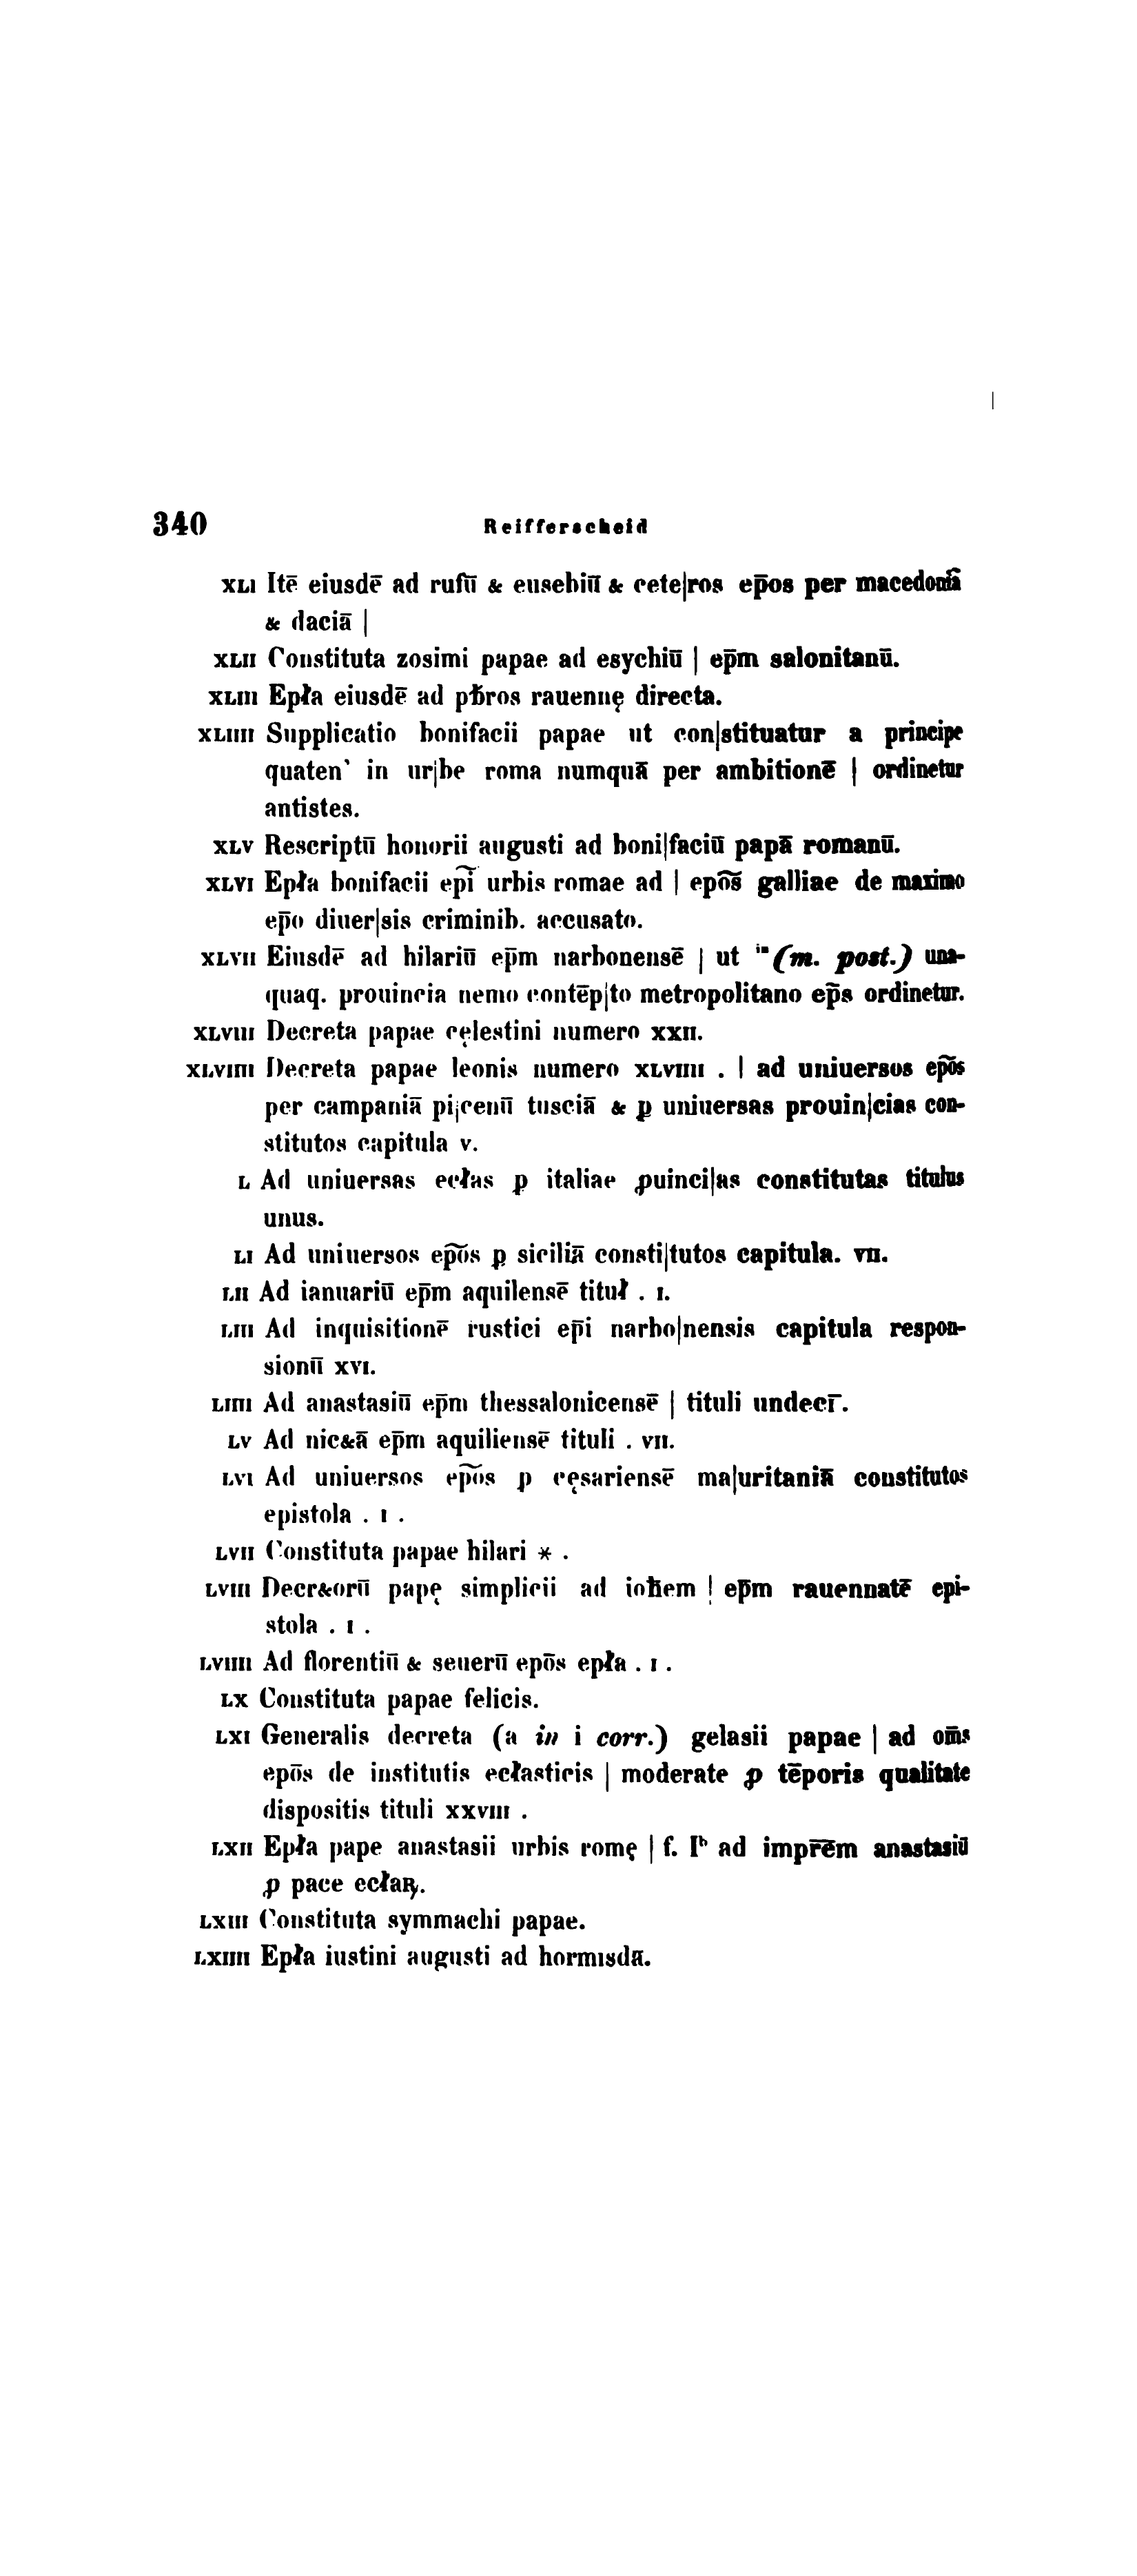 340 Reifferscheid
XLI Itē eiusdē ad rufū & eusebiū & cete|ros ep̄os per macedoniā
& daciā |
XLII Constituta zosimi papae ad esychiū | ep̄m salonitanū.
XLIII Epła eiusdē ad pƀros rauennę directa.
XLIIII Supplicatio bonifacii papae ut con|stituatur a principe
quaten᾽ in ur|be roma numquā per ambitionē | ordinetur
antistes.
XLV Rescriptū honorii augusti ad boni|faciū papā romanū.
XLVI Epła bonifacii ep̄i urbis romae ad | epo͞s galliae de maximo
ep̄o diuer|sis criminib. accusato.
XLVII Eiusdē ad hilariū ep̄m narbonensē | ut in (m. post.) una-
quaq. prouincia nemo contēp|to metropolitano ep̄s ordinetur.
XLVIII Decreta papae cęlestini numero XXII.
XLVIIII Decreta papae leonis numero XLVIIII . | ad uniuersos epo͞s
per campaniā pi|cenū tusciā & ꝑ uniuersas prouin|cias con-
stitutos capitula V.
L Ad uniuersas ecłas ꝑ italiae ꝓuinci|as constitutas titulus
unus.
LI Ad uniuersos epo͞s ꝑ siciliā consti|tutos capitula. VII.
LII Ad ianuariū ep̄m aquilensē tituł . I.
LIII Ad inquisitionē rustici ep̄i narbo|nensis capitula respon-
sionū XVI.
LIIII Ad anastasiū ep̄m thessalonicensē | tituli undecī.
LV Ad nic&ā ep̄m aquiliensē tituli . VII.
LVI Ad uniuersos epo͞s ꝑ cęsariensē ma|uritaniā constitutos
epistola . I .
LVII Constituta papae hilari * .
LVIII Decr&orū papę simplicii ad ioħem | ep̄m rauennatē epi-
stola . I .
LVIIII Ad florentiū & seuerū epōs epła . I .
LX Constituta papae felicis.
LXI Generalis decreta (a in i corr.) gelasii papae | ad om̄s
epōs de institutis ecłasticis | moderate ꝓ tēporis qualitate
dispositis tituli XXVIII .
LXII Epła pape anastasii urbis romę | f. Iᵇ ad impr̄ēm anastasiū
ꝓ pace ecłaꝶ.
LXIII Constituta symmachi papae.
LXIIII Epła iustini augusti ad hormisdā.